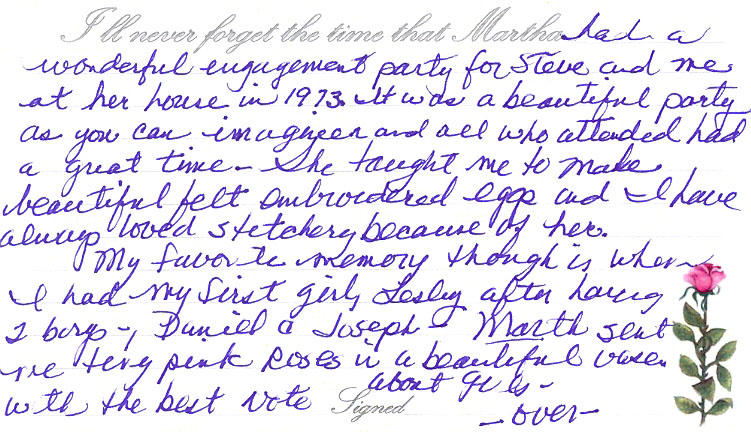 I'll never forget the time that Martha had a
wonderful engagement party for Steve and me
at her house in 1973. It was a beautiful party
as you can imagine and all who attended had
a great time - She taught me to make
beautiful felt embroidered eggs and I have
always loved stetchery because of her.
My favorite memory though is when
I had my first girl, Lesley after having
2 boys -, Daniel & Joseph - Marth sent
me tiny pink Roses in a beautiful vase
with the best note about girls -
Signed
- over -